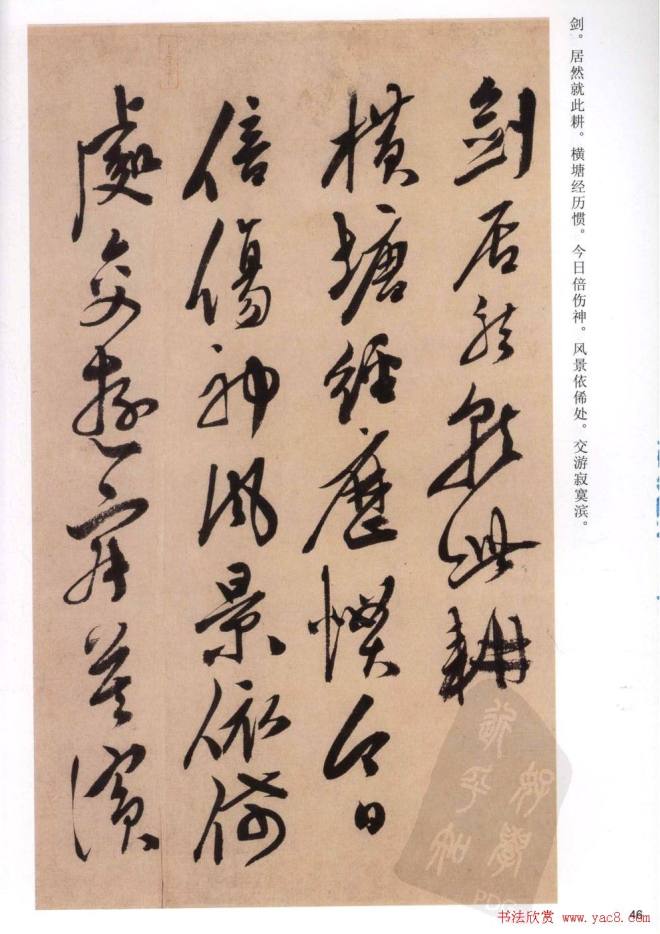 剑。居然就此耕。横塘经历惯。今日倍伤神。风景依俙处。交游寂寞滨。
劍居然就此耕
橫塘經歷慣今日
倍傷神風景依俙
處交遊寂寞濱
PDG
46
书法欣赏 www.yac8.com